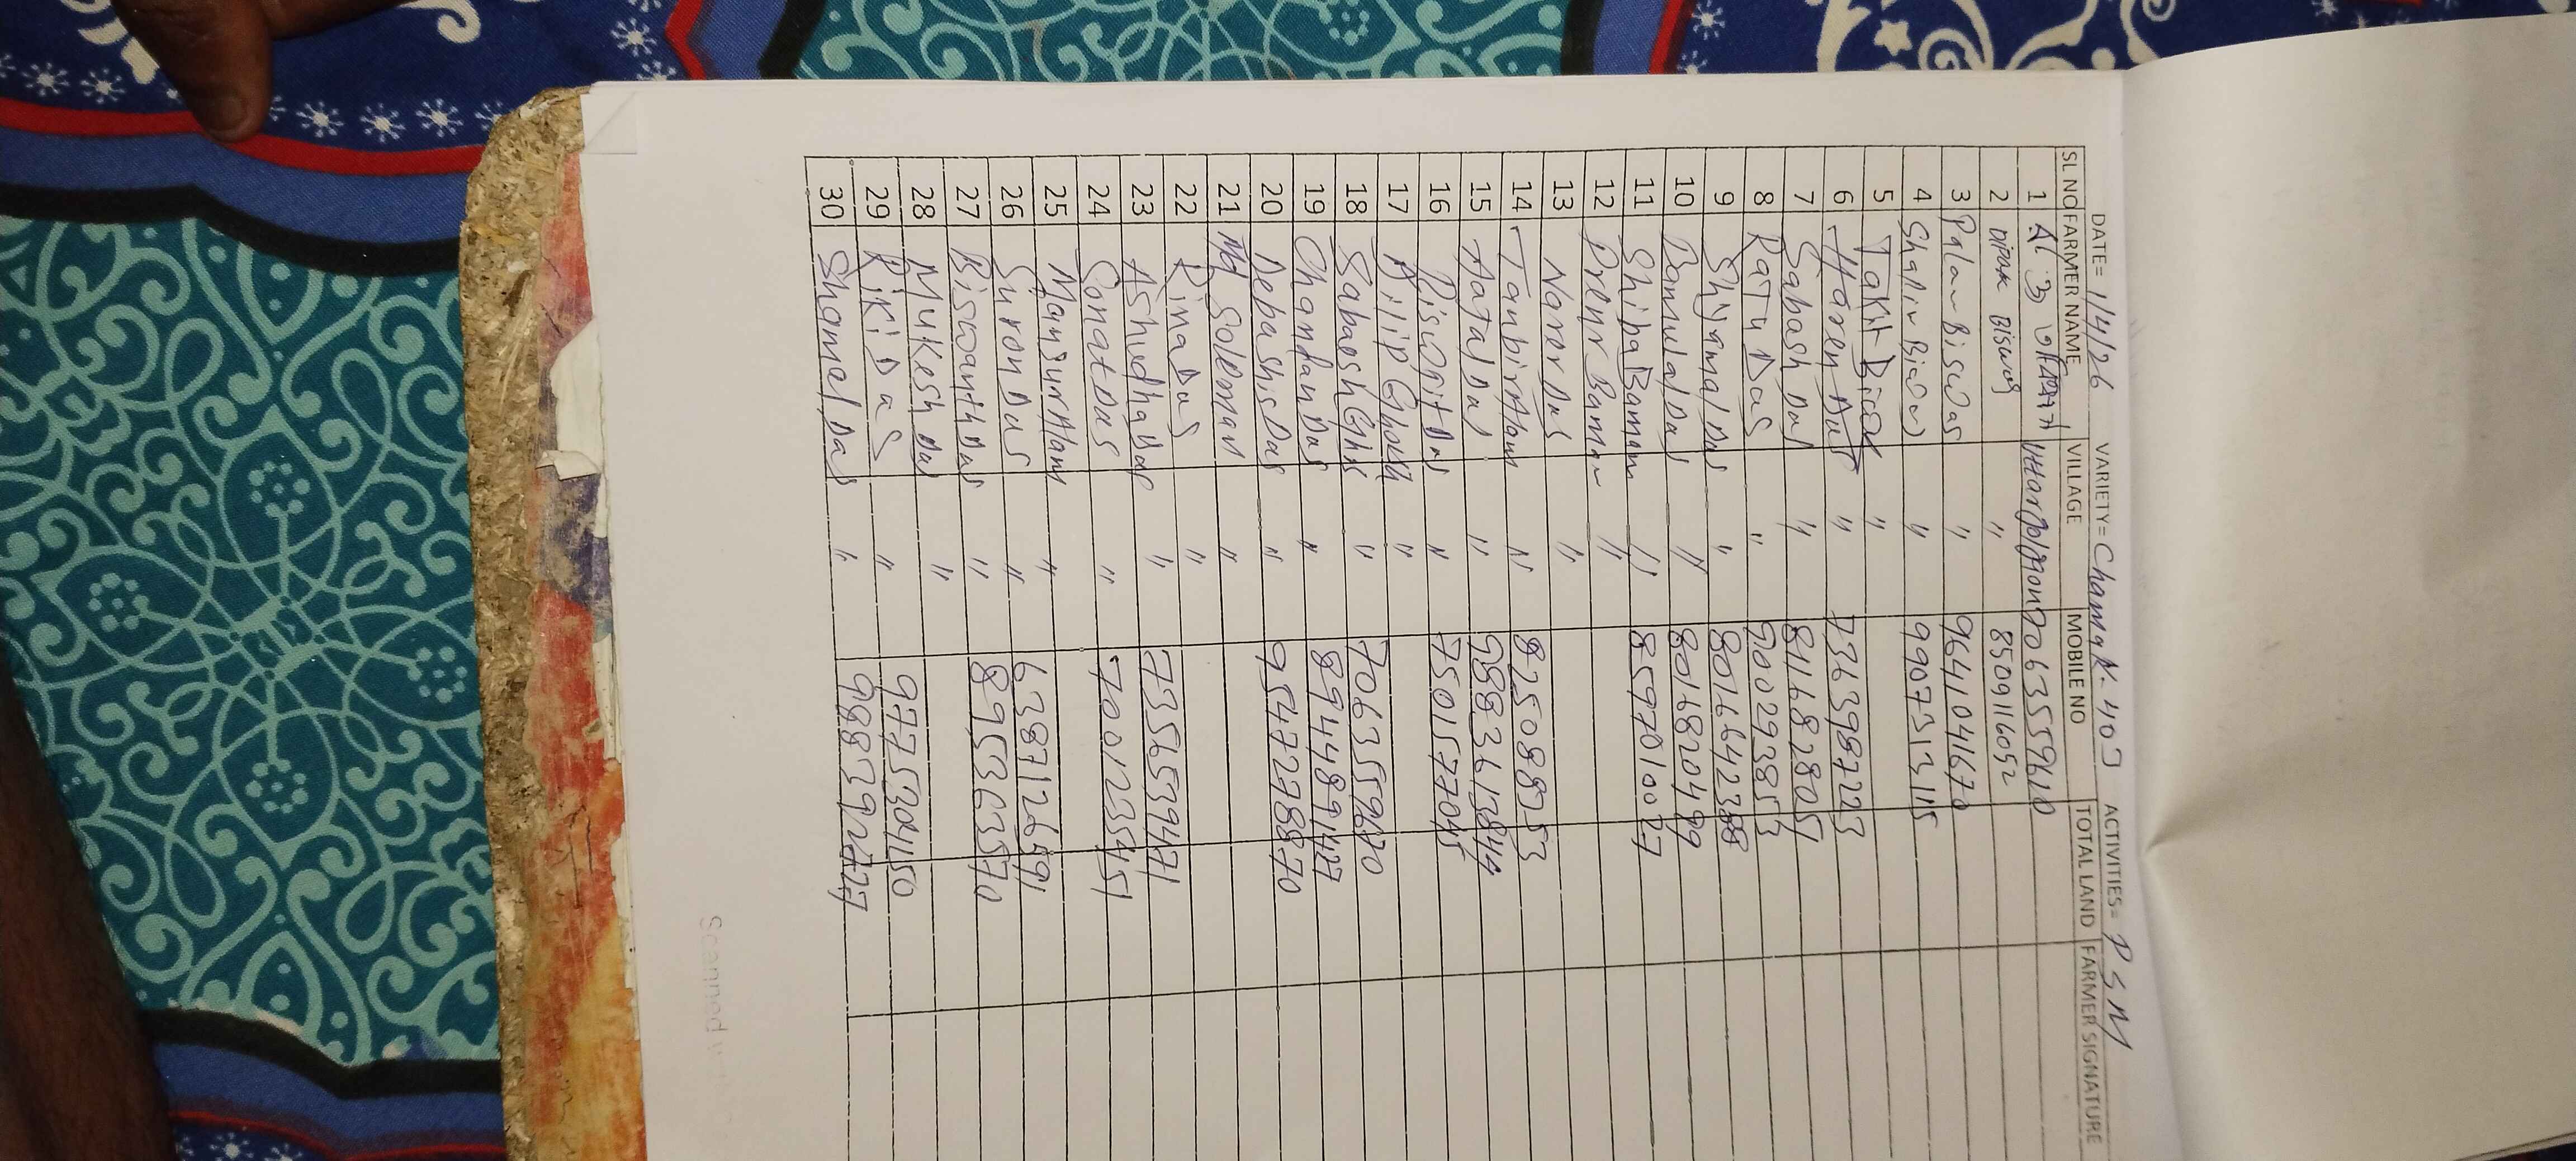 DATE= 1/4/26 VARIETY= Chamak-403 ACTIVITIES= PSM
SL NO FARMER NAME VILLAGE MOBILE NO TOTAL LAND FARMER SIGNATURE
1 9063559610
2 Dipak Biswas " 8509116052
3 Palan Biswas " 9641041670
4 Shalin Biswas " 9907313115
5 "
6 Haren Das " 7363987223
7 Sabash Das " 8116828051
8 Ratu Das " 9002923853
9 Shyamal Das " 8016642388
10 Ramulal Das " 8016820499
11 Shiba Barman " 8597010027
12 Barman "
13 Naren Das "
14 Tanbir Alam " 8250888753
15 Das " 9883613844
16 Biswajit Das " 7501577045
17 Dilip Ghosh "
18 Sabaesh Ghsh " 7063559670
19 Chandan Das " 8944891427
20 Debashis Das " 9547278870
21 Md Soleman "
22 Rina Das "
23 Ashudha Das " 7356539471
24 Sonat Das " 7001235451
25 Mansur Alam "
26 Suron Das " 6387126591
27 Biswanth Das " 8953635570
28 Mukesh Das "
29 Riki Das " 9775304150
30 Shamal Das "
Scanned w